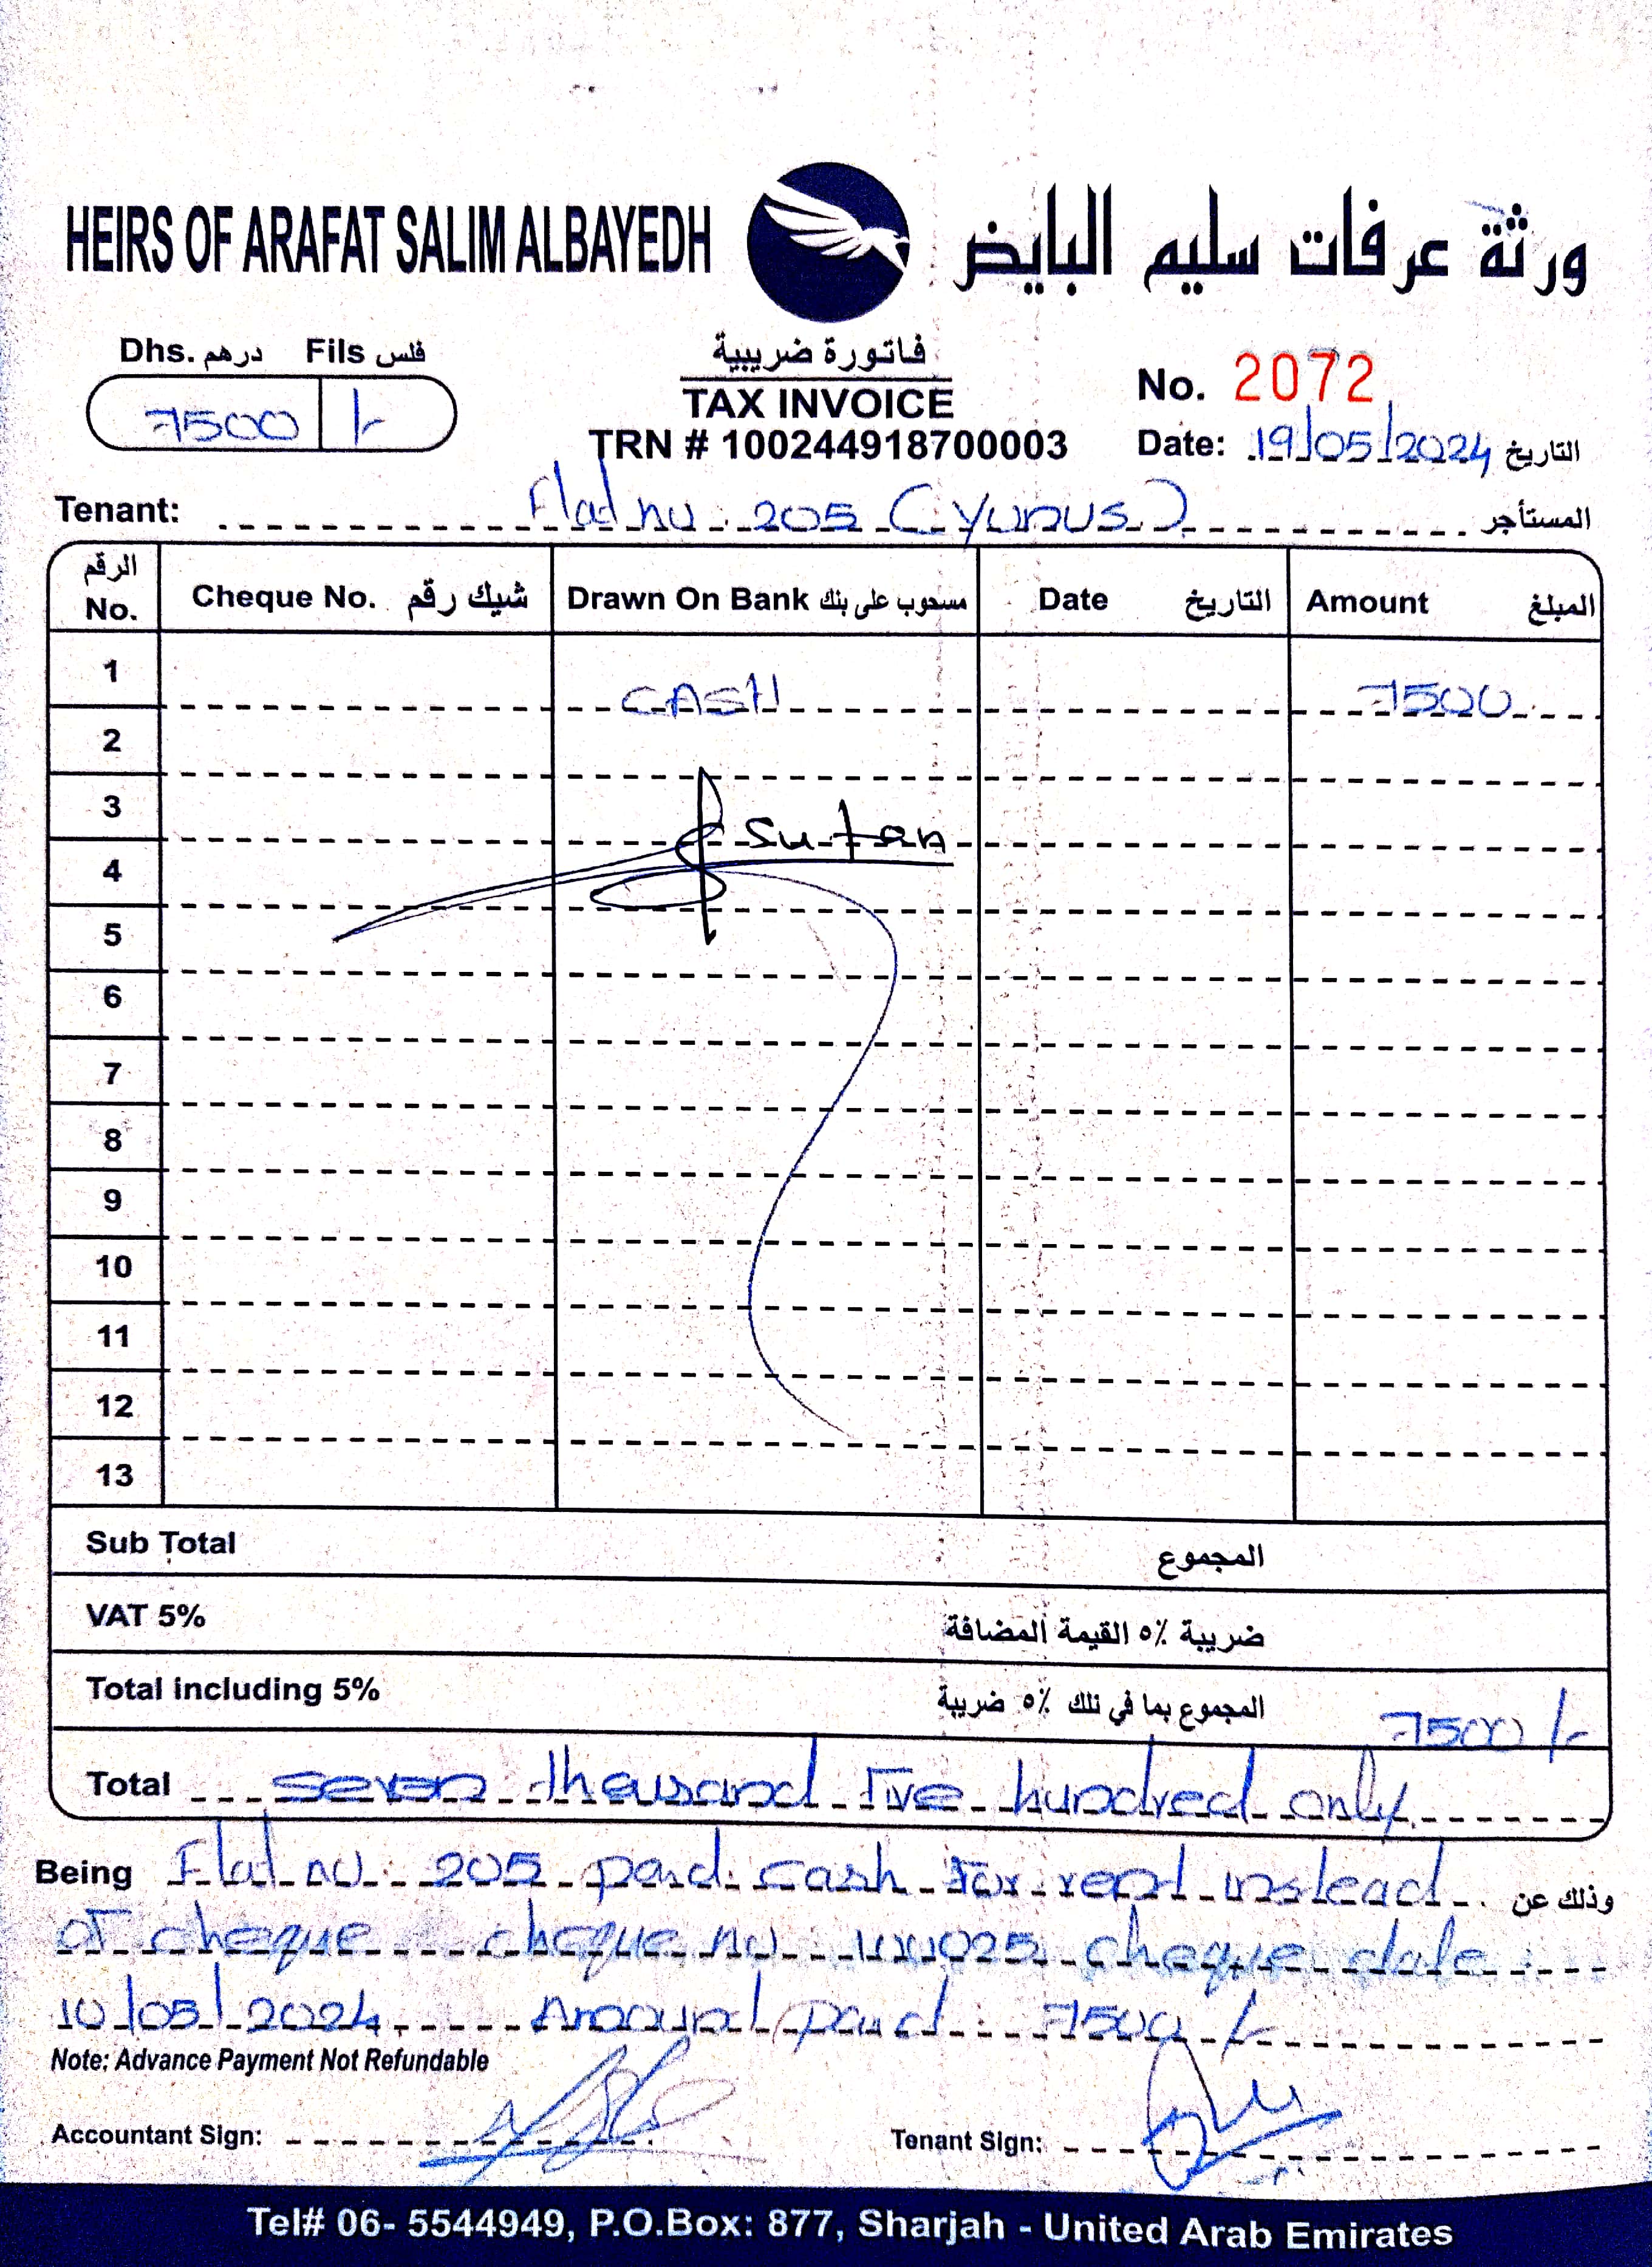 HEIRS OF ARAFAT SALIM ALBAYEDH ورثة عرفات سليم البايض
Dhs. درهم Fils فلس
7500 /-
فاتورة ضريبية
TAX INVOICE
TRN # 100244918700003
No. 2072
Date: 19/05/2024 التاريخ
Tenant: Flat no: 205 (Yunus) المستأجر
الرقم No. Cheque No. شيك رقم Drawn On Bank مسحوب على بنك Date التاريخ Amount المبلغ
1 CASH 7500
2
3 Sultan
4
5
6
7
8
9
10
11
12
13
Sub Total المجموع
VAT 5% ضريبة ٥٪ القيمة المضافة
Total including 5% المجموع بما في تلك ٥٪ ضريبة 7500/-
Total seven thousand five hundred only
Being Flat no: 205 paid cash for rent instead وذلك عن
of cheque cheque no: 100025 cheque date:
10/05/2024. Amount paid: 7500/-
Note: Advance Payment Not Refundable
Accountant Sign: Tenant Sign:
Tel# 06- 5544949, P.O.Box: 877, Sharjah - United Arab Emirates